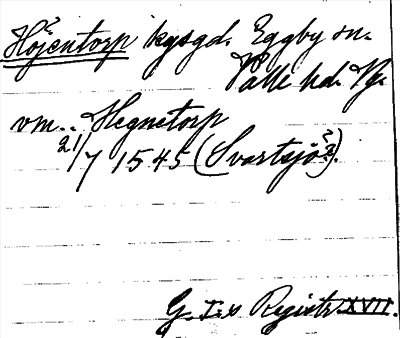 Höjentorp kgsgd. Eggby sn.
Valle hd. Vg.
vm. Hegnetorp
21/7 1545 (Svartsjö?).
G. I:s Registr. XVII.